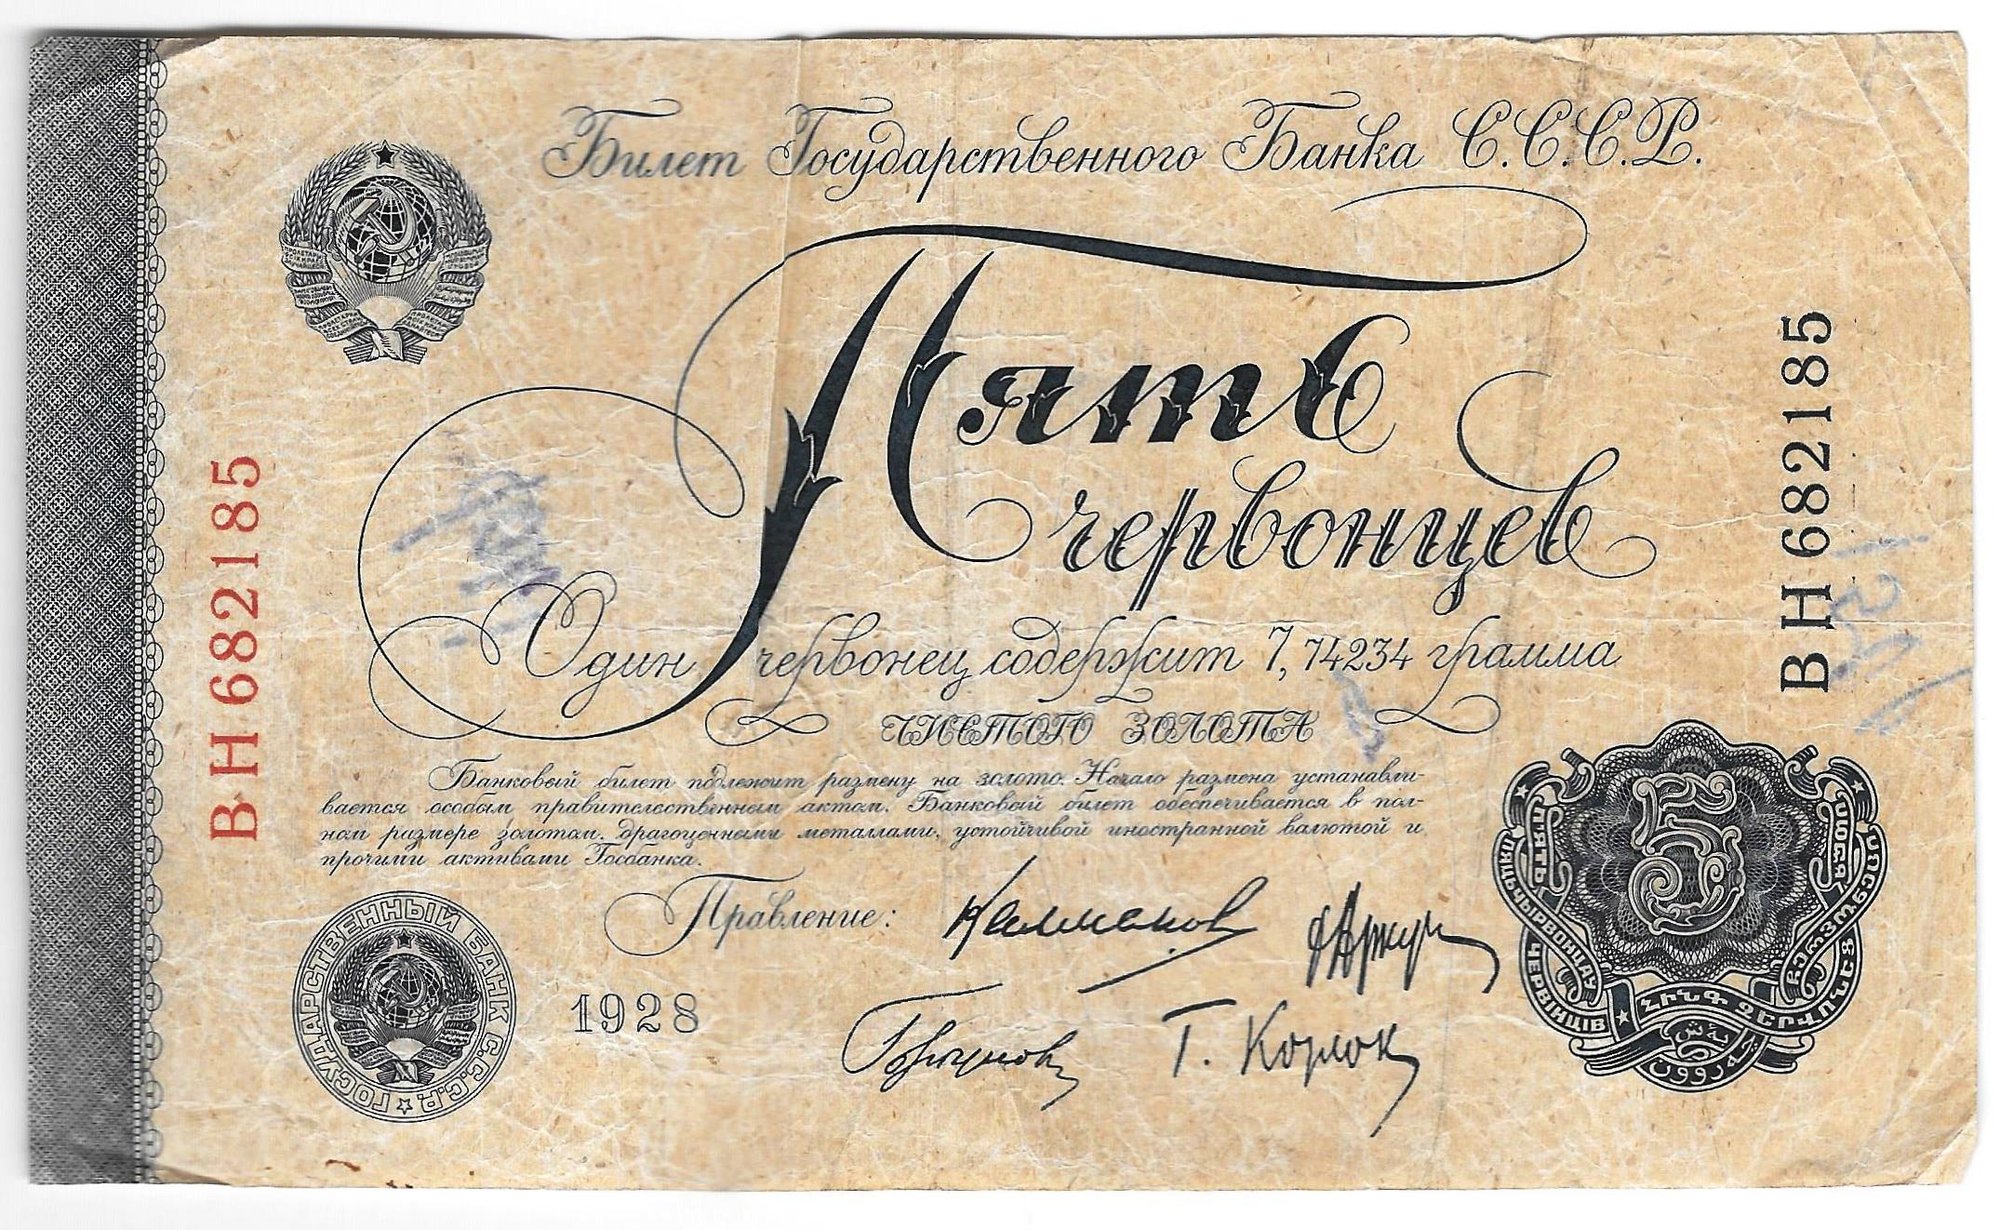 Билет Государственного Банка С.С.С.Р.
Пять
червонцев
Один червонец содержит 7,74234 грамма
ЧИСТОГО ЗОЛОТА
Банковый билет подлежит размену на золото. Начало размена устанавли-
вается особым правительственным актом. Банковый билет обеспечивается в пол-
ном размере золотом, драгоценными металлами, устойчивой иностранной валютой и
прочими активами Госбанка.
Правление:
Т. Корлок
1928
ВН 682185
ВН 682185
ГОСУДАРСТВЕННЫЙ БАНК С.С.С.Р.
5
ПЯТЬ
ЧЕРВІНЦІВ
ՀԻՆԳ ՉԵՐՎՈՆԵՑ